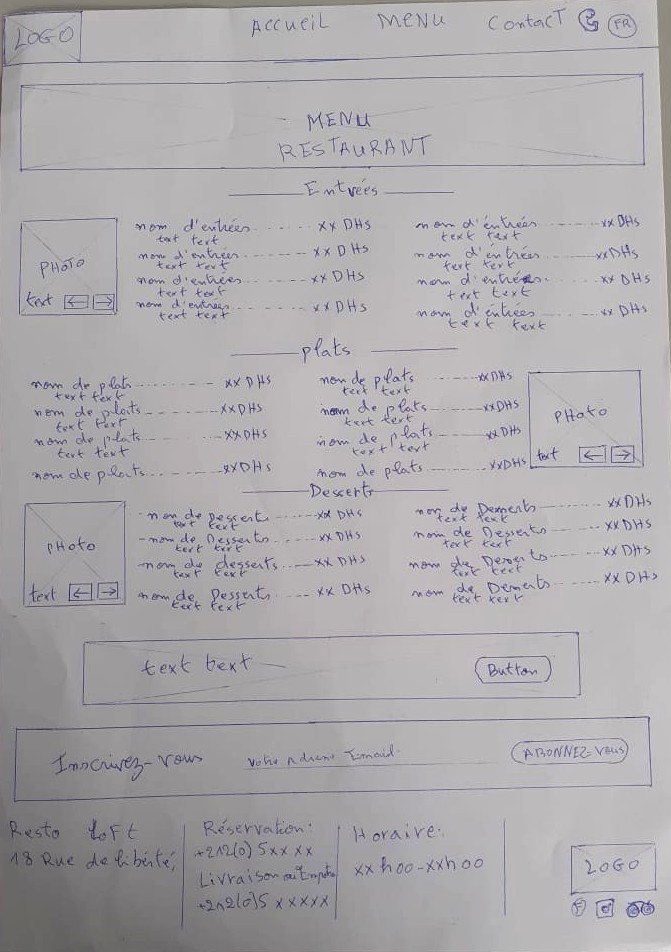 LOGO
Accueil MENU Contact FR
MENU
RESTAURANT
Entrées
PHOTO
text ← →
nom d'entrées ------ xx DHs
text text
nom d'entrées ------ xx DHs
text text
nom d'entrées ------ xx DHs
text text
nom d'entrées ------ xx DHs
text text
nom d'entrées ------ xx DHs
text text
nom d'entrées ------ xx DHs
text text
nom d'entrées ------ xx DHs
text text
nom d'entrées ------ xx DHs
text text
plats
nom de plats ------ xx DHs
text text
nom de plats ------ xx DHs
text text
nom de plats ------ xx DHs
text text
nom de plats ------ xx DHs
nom de plats ------ xx DHs
text text
nom de plats ------ xx DHs
text text
nom de plats ------ xx DHs
text text
nom de plats ------ xx DHs
PHOTO
text ← →
Desserts
PHOTO
text ← →
- nom de Desserts ------ xx DHs
text text
- nom de Desserts ------ xx DHs
text text
- nom de desserts ------ xx DHs
text text
nom de Desserts ------ xx DHs
text text
nom de Desserts ------ xx DHs
text text
nom de Desserts ------ xx DHs
text text
nom de Desserts ------ xx DHs
text text
nom de Desserts ------ xx DHs
text text
text text
Button
Inscrivez-vous votre Adresse Email. ABONNEZ-VOUS
Resto LoFt
18 Rue de libérté,
Réservation:
+212(0)5xx xx
Livraison ou Emporter
+212(0)5 xxxxx
Horaire:
xxh00-xxh00
LOGO
F